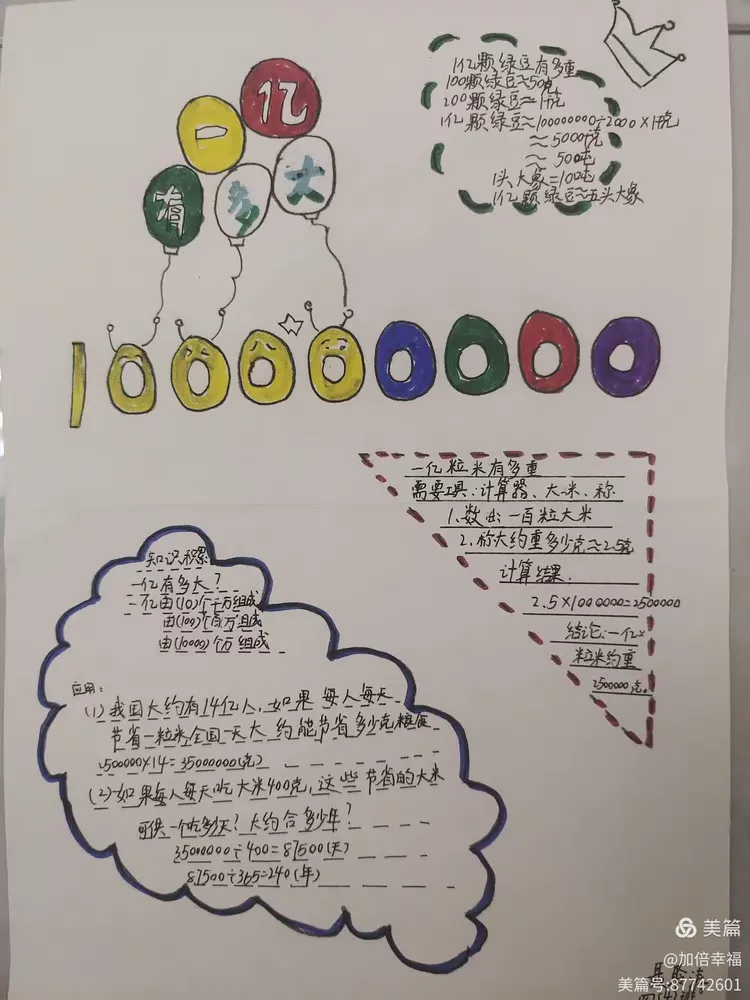 一亿
有多大
1亿颗绿豆有多重
100颗绿豆≈50克
200颗绿豆≈1千克
1亿颗绿豆≈100000000÷2000×1千克
≈5000千克
≈500吨
1头大象=100吨
1亿颗绿豆≈五头大象
100000000
一亿粒米有多重
需要工具:计算器、大米、称
1.数出一百粒大米
2.称大约重多少克≈2.5克
计算结果:
2.5×1000000=2500000
结论:一亿
粒米约重
2500000克.
知识积累
一亿有多大?
一亿由(10)个千万组成
由(100)个百万组成
由(10000)个万组成
应用:
(1)我国大约有14亿人,如果每人每天
节省一粒米,全国一天大约能节省多少克粮食
2500000×14=35000000(克)
(2)如果每人每天吃大米400克,这些节省的大米
可供一个吃多天?大约合多少年?
35000000÷400=87500(天)
87500÷365=240(年)
美篇
@加倍幸福
美篇号:87742601